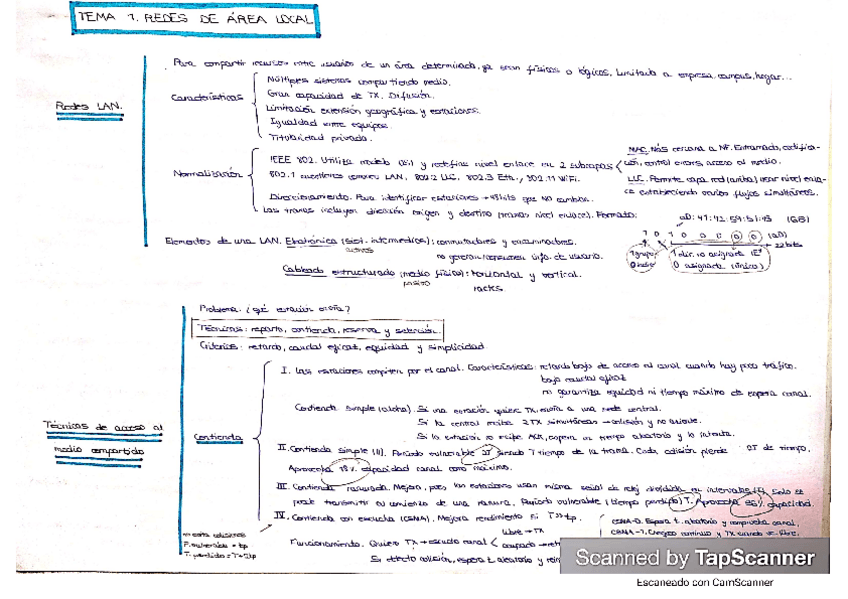 TEMA 1. REDES DE ÁREA LOCAL
Para compartir recursos entre usuarios de un área determinada, ya sean físicos o lógicos. Limitado a empresa, campus, hogar...
Redes LAN.
Características
Múltiples sistemas compartiendo medio.
Gran capacidad de TX. Difusión.
Limitación extensión geográfica y estaciones.
Igualdad entre equipos.
Titularidad privada.
Normalización
IEEE 802. Utiliza modelo OSI y redefine nivel enlace en 2 subcapas
MAC. Más cercana a NF. Entramado, codificación, control errores, acceso al medio.
LLC. Permite capa red (arriba) usar nivel enlace estableciendo varios flujos simultáneos.
802.1 cuestiones comunes LAN, 802.2 LLC, 802.3 Eth., 802.11 WiFi.
Direccionamiento. Para identificar estaciones → 48 bits que no cambian.
Las tramas incluyen dirección origen y destino (tramas nivel enlace). Formato:
22 bits
1 grupo
1 dir. no asignada IE³
0 asignada (único)
Elementos de una LAN. Electrónica (sist. intermedios): conmutadores y encaminadores.
activos
no generan/consumen info. de usuario.
Cableado estructurado (medio físico): Horizontal y vertical.
pasivo
racks.
Problema: ¿qué estación envía?
Técnicas: reparto, contienda, reserva y selección.
Criterios: retardo, caudal eficaz, equidad y simplicidad
Técnicas de acceso al
medio compartido
Contienda
I. Las estaciones compiten por el canal. Características: retardo bajo de acceso al canal cuando hay poco tráfico.
bajo caudal eficaz
no garantiza equidad ni tiempo máximo de espera canal.
Contienda simple (aloha). Si una estación quiere TX, envía a una sede central.
Si la central recibe 2 TX simultáneas → colisión y no
Si la estación no recibe ACK, espera un tiempo aleatorio y lo intenta.
II. Contienda simple (II). Periodo vulnerable 2T siendo T tiempo de la trama. Cada colisión pierde 2T de tiempo.
Aprovecha 18% capacidad canal como máximo.
III. Contienda ranurada. Mejora, pues las estaciones usan misma señal de reloj dividida en intervalos T. Solo se
puede transmitir al comienzo de una ranura. Periodo vulnerable (tiempo perdido) T. Aprovecha 36% capacidad.
IV. Contienda con escucha (CSMA). Mejora rendimiento si T>tp.
CSMA-0. Espera t. aleatorio y comprueba canal.
Funcionamiento. Quiere TX → escucha canal
libre → TX
P. vulnerable = tp
T. perdido = T+2tp
Si detecta colisión, espera t. aleatorio y
Scanned by TapScanner
Escaneado con CamScanner